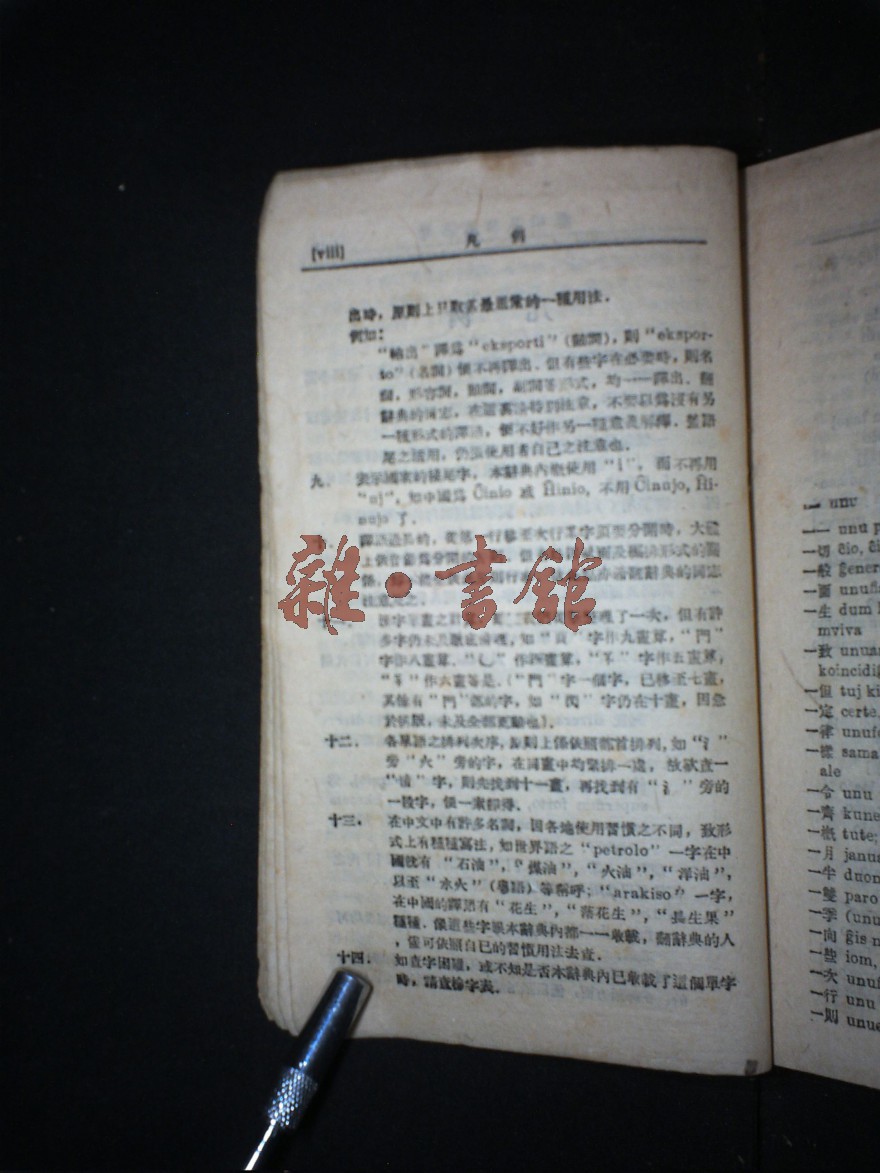 [viii]
凡 例
出時，原則上只取其最通常的一種用法．
例如：
"輸出"譯爲"eksporti"（動詞），則"ekspor-
to"（名詞）便不再譯出．但有些字在必要時，則名
詞，形容詞，動詞，副詞等形式，均一一譯出．翻
辭典的同志，在這裏請特別注意，不要以爲沒有另
一種形式的譯語，便不好作另一種意義解釋．
尾之活用，仍須使用者自己之注意也．
九． 表示國家的接尾字，本辭典內概使用"i"，而不再用
"uj"，如中國爲 Ĉinio 或 Ĥinio，不用 Ĉinujo, Ĥi-
nujo 了．
譯語過長的，從第一行移至次行某字須要分開時，大體
上依音節爲分開的
十一．
多字仍未及徹底清理，如"良"字作九畫算，"門"
字作八畫算．"辶"作四畫算，字作五畫算，
作六畫等是．（"門"字一個字，已移至七畫，
其餘有"門"部的字，如"閃"字仍在十畫，因急
於依版，未及全部更動也）．
十二． 各單語之排列次序，原則上係依照部首排列，如"氵"
旁"火"旁的字，在同畫中均緊排一處，故欲查一
"清"字，則先找到十一畫，再找到有"氵"旁的
一段字，便一索即得．
十三． 在中文中有許多名詞，因各地使用習慣之不同，致形
式上有種種寫法，如世界語之"petrolo"一字在中
國就有"石油"，"煤油"，"火油"，"洋油"，
以至"水火"（粵語）等稱呼；"arakiso"一字，
在中國的譯語有"花生"，"落花生"，"長生果"
種種．像這些字眼本辭典內都一一收載，翻辭典的人
，儘可依照自己的習慣用法去查．
十四． 如查字困難，或不知是否本辭典內已收載了這個單字
時，請查檢字表．
一 unu
一一 unu p
一切 ĉio, ĉi
一般 ĝener
一面 unufla
一生 dum l
mviva
一致 unuas
koincidi
一但 tuj ki
一定 certe,
一律 unufo
一樣 sama
ale
一令 unu
一齊 kune
一概 tute;
一月 janua
一半 duon
一雙 paro
一季 (unu
一向 ĝis n
一些 iom,
一次 unuf
一行 unu
一則 unue
雜·書館